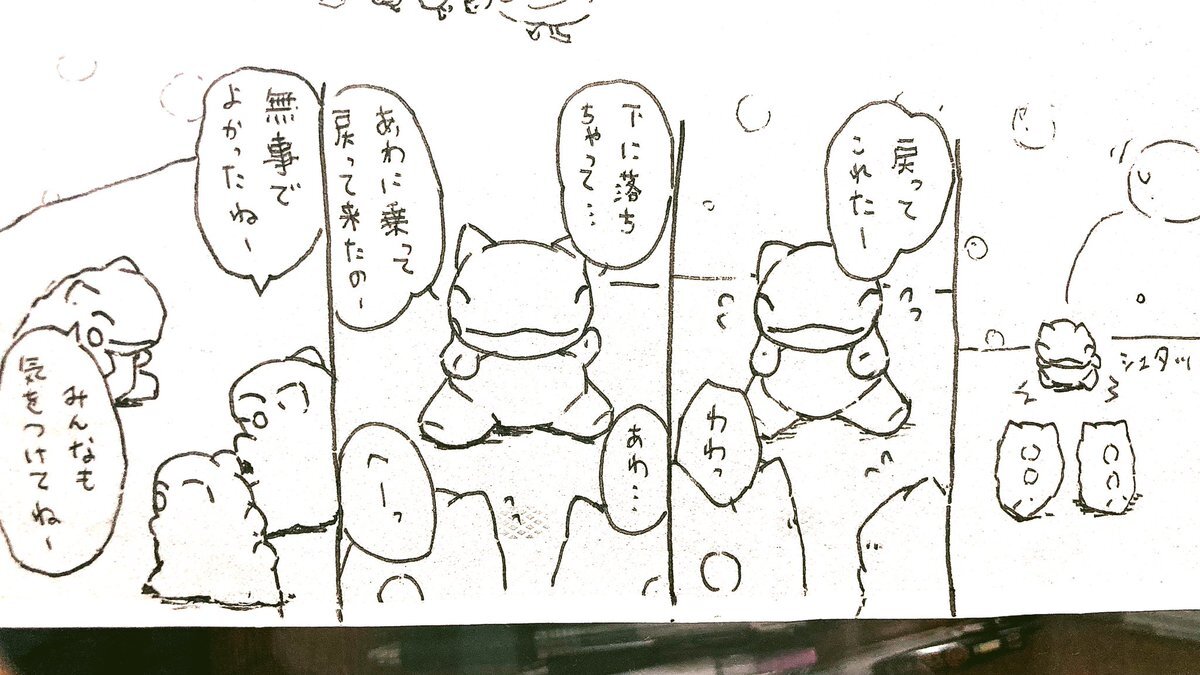 シュタッ
戻って
これたー
わわっ
下に落ち
ちゃって…
あわ…
あわに乗って
戻って来たのー
へーっ
無事で
よかったねー
みんなも
気をつけてねー